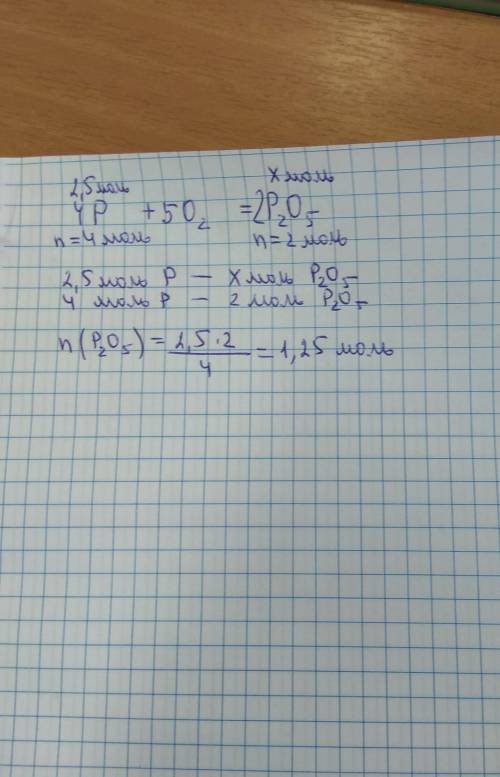 2,5 моль x моль
4P + 5O₂ = 2P₂O₅
n = 4 моль n = 2 моль
2,5 моль P — x моль P₂O₅
4 моль P — 2 моль P₂O₅
n (P₂O₅) = 2,5 · 2 / 4 = 1,25 моль